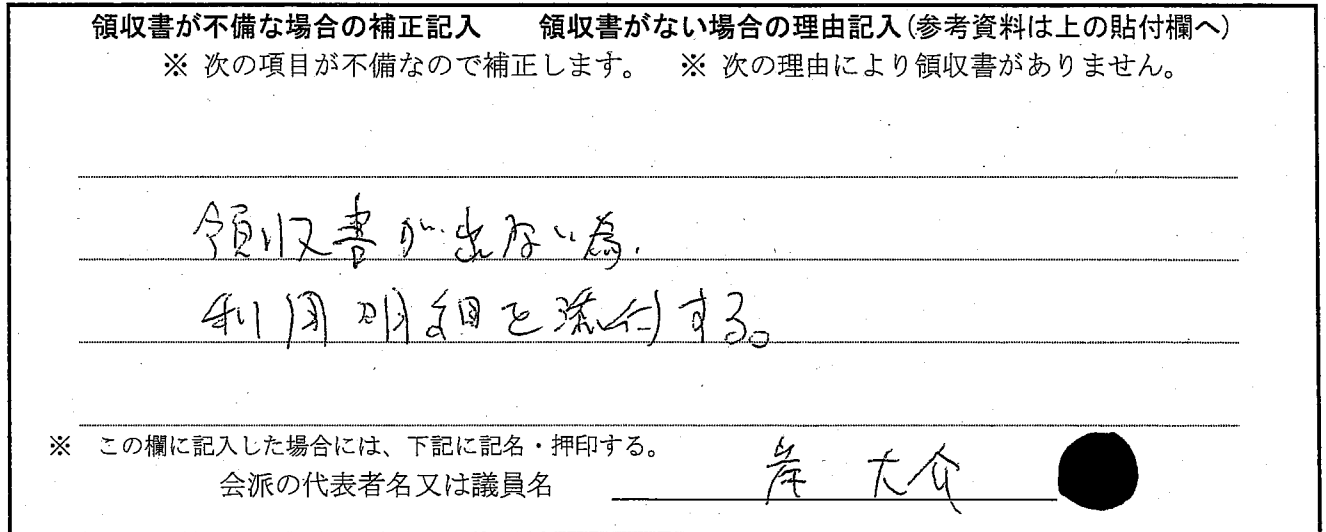 領収書が不備な場合の補正記入 領収書がない場合の理由記入(参考資料は上の貼付欄へ)
※ 次の項目が不備なので補正します。 ※ 次の理由により領収書がありません。
領収書が出ない為、
利用明細を添付する。
※ この欄に記入した場合には、下記に記名・押印する。
会派の代表者名又は議員名 岸 大介